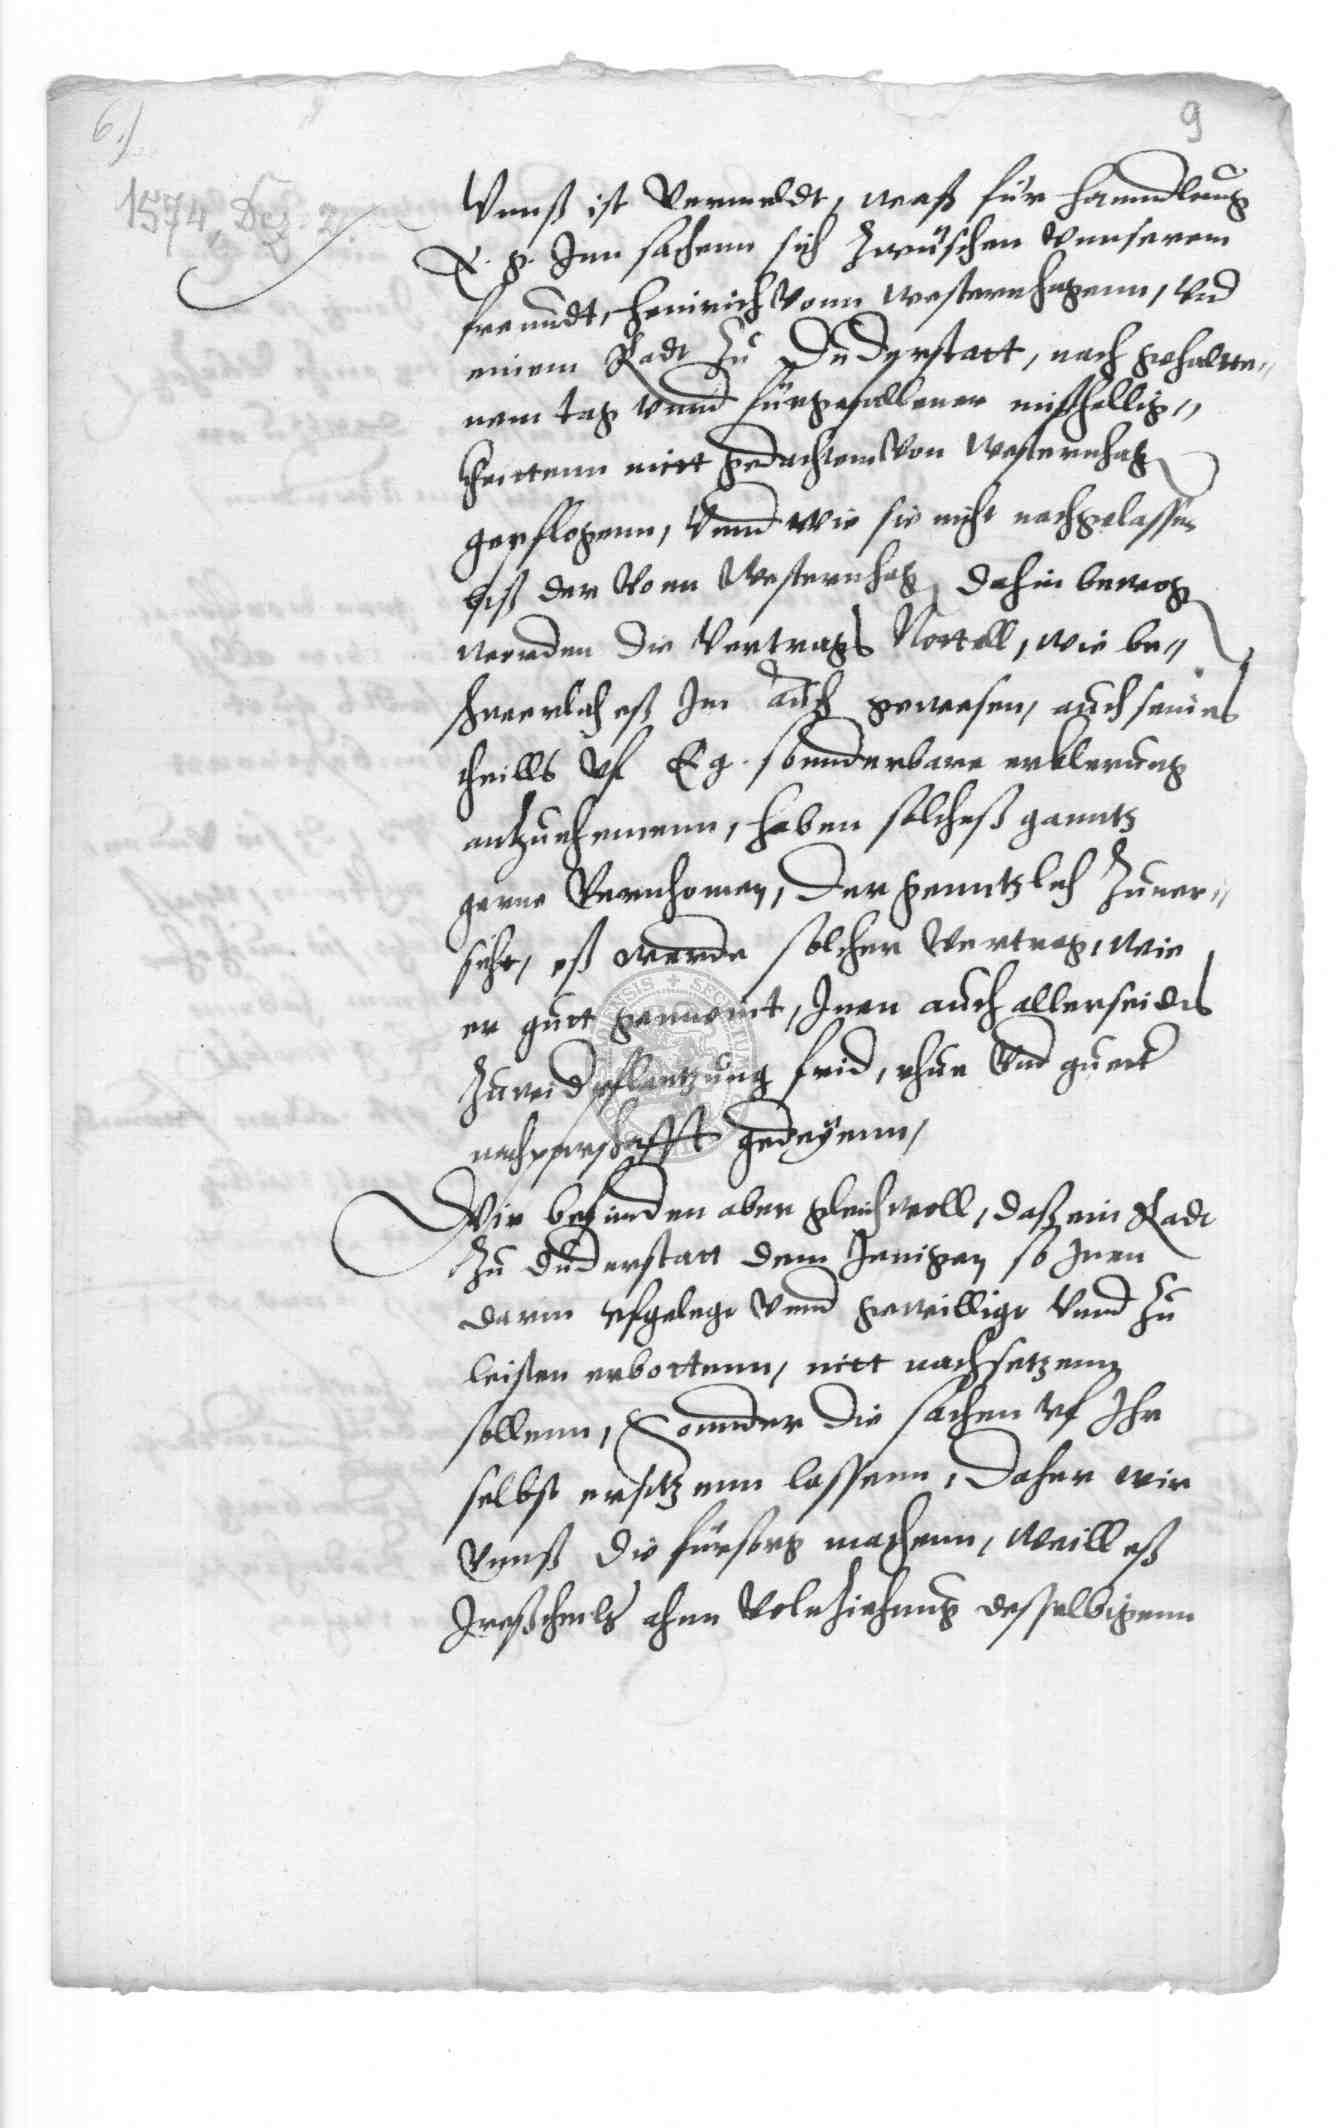 6.)
9
1574, Dez. 2.
Vnnß ist Vermeldt, waß für hanndlung
E. g. Inn sachenn sich Zwuschen Vnnserem
freundt, Heinrich Vonn Westernhagenn, Vnd
einem Radt Zu Duderstatt, nach gehaltte-
nem tag Vnnd fürgefallener mißhellig-
keittenn mitt gedachtem Von Westernhag
gepflogenn, Vnnd wie sie nicht nachgelassen
biß der Vonn Westernhag, dahin bewog
werden die Vertrags Nottell, wie be-
schwerlich eß Im auch gewesen, auch seines
theills Vf E g. sonnderbare erklerung
antzunhemenn, haben solcheß ganntz
gerne Vernhomen, der genntzlich Zuuer-
sicht, eß werde solcher Vertrag, wie
er gutt gemeint, Inen auch allerseidts
Zu pflantzung frid, rhue Vnd guett
nachparschafft gedeyenn,
Wir befinden aber gleichwoll, daß ein Radt
Zu Duderstatt dem Jenigen so Inen
darin vfgelegt Vnnd gewilligt Vnnd Zu
leisten erbottenn, nitt nachsetzenn
sollenn, Sonnder die sachen vf Ihr
selbst ersitzenn lassenn, Daher wir
Vnnß die fürsorg machenn, Weill eß
Ireßtheils ahnn Voluziehung desselbigenn